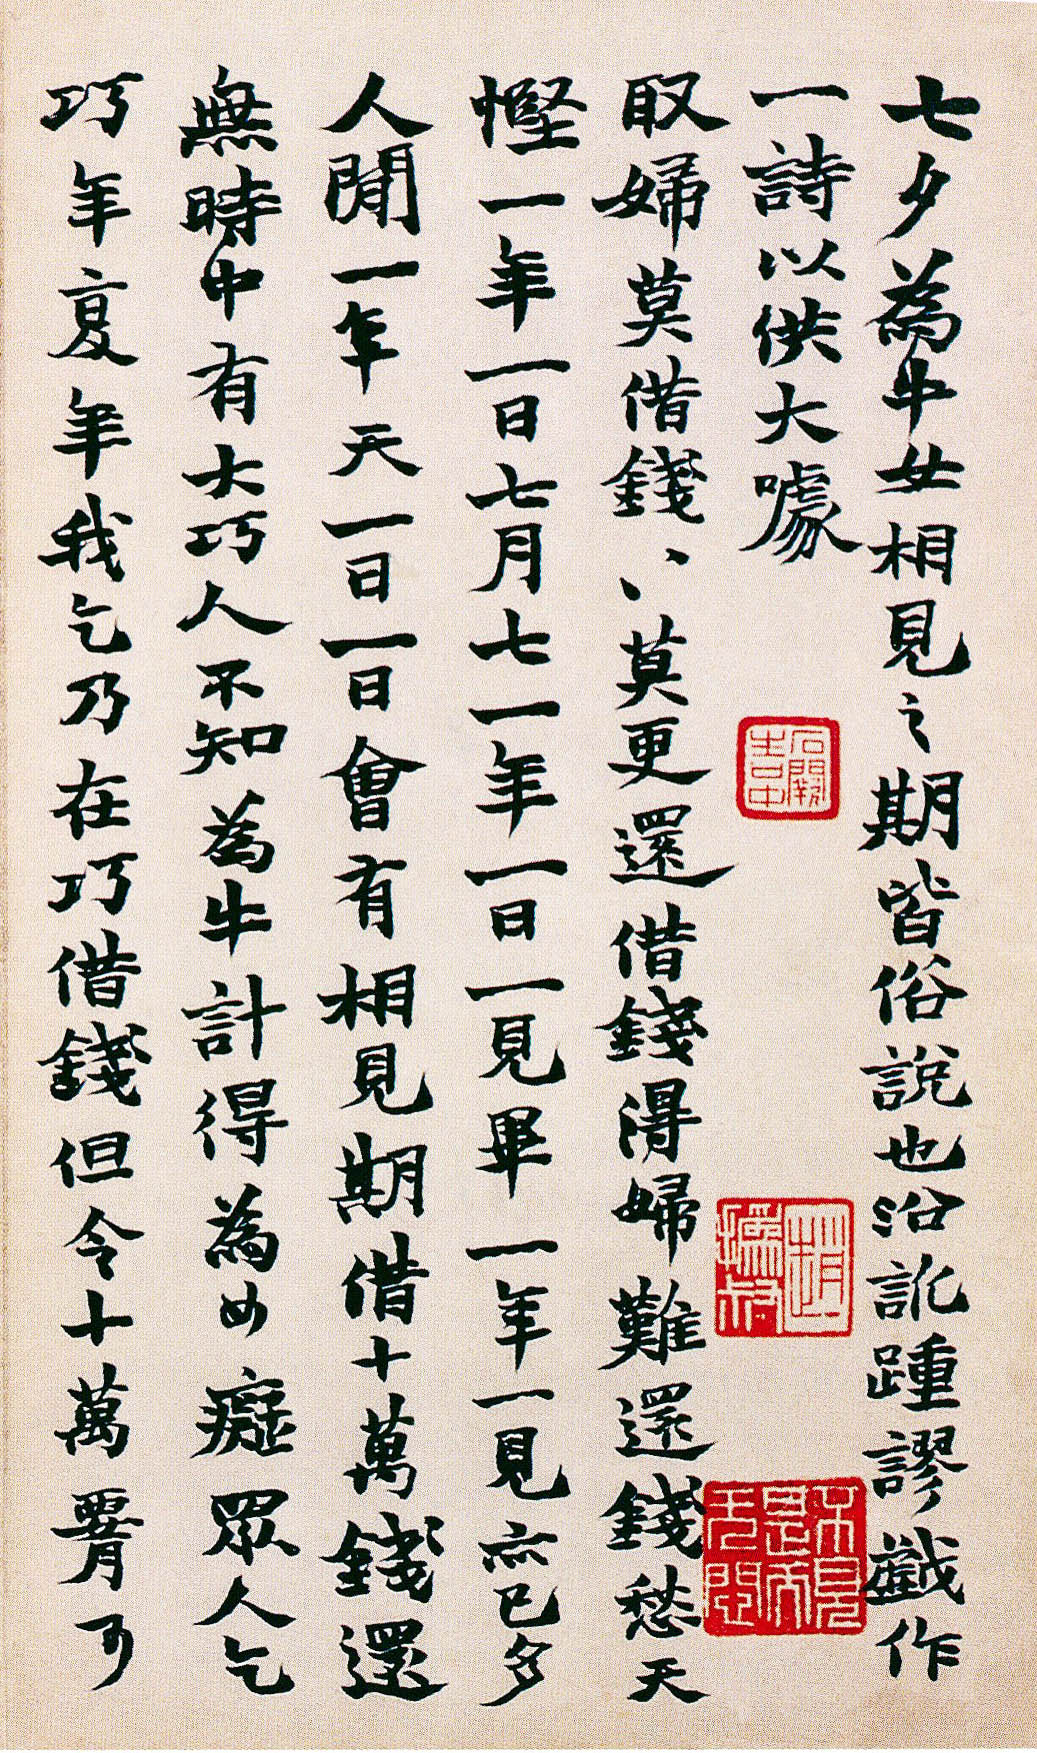 七夕為牛女相見之期皆俗說也沿訛踵謬戲作
一詩以供大噱
取婦莫借錢、、莫更還借錢得婦難還錢愁天
慳一年一日七月七一年一日一見畢一年一見亦已多
人間一年天一日一日會有相見期借十萬錢還
無時中有大巧人不知為牛計得為女癡眾人乞
巧年复年我乞乃在巧借錢但令十萬可
石闕生口中
趙撝叔